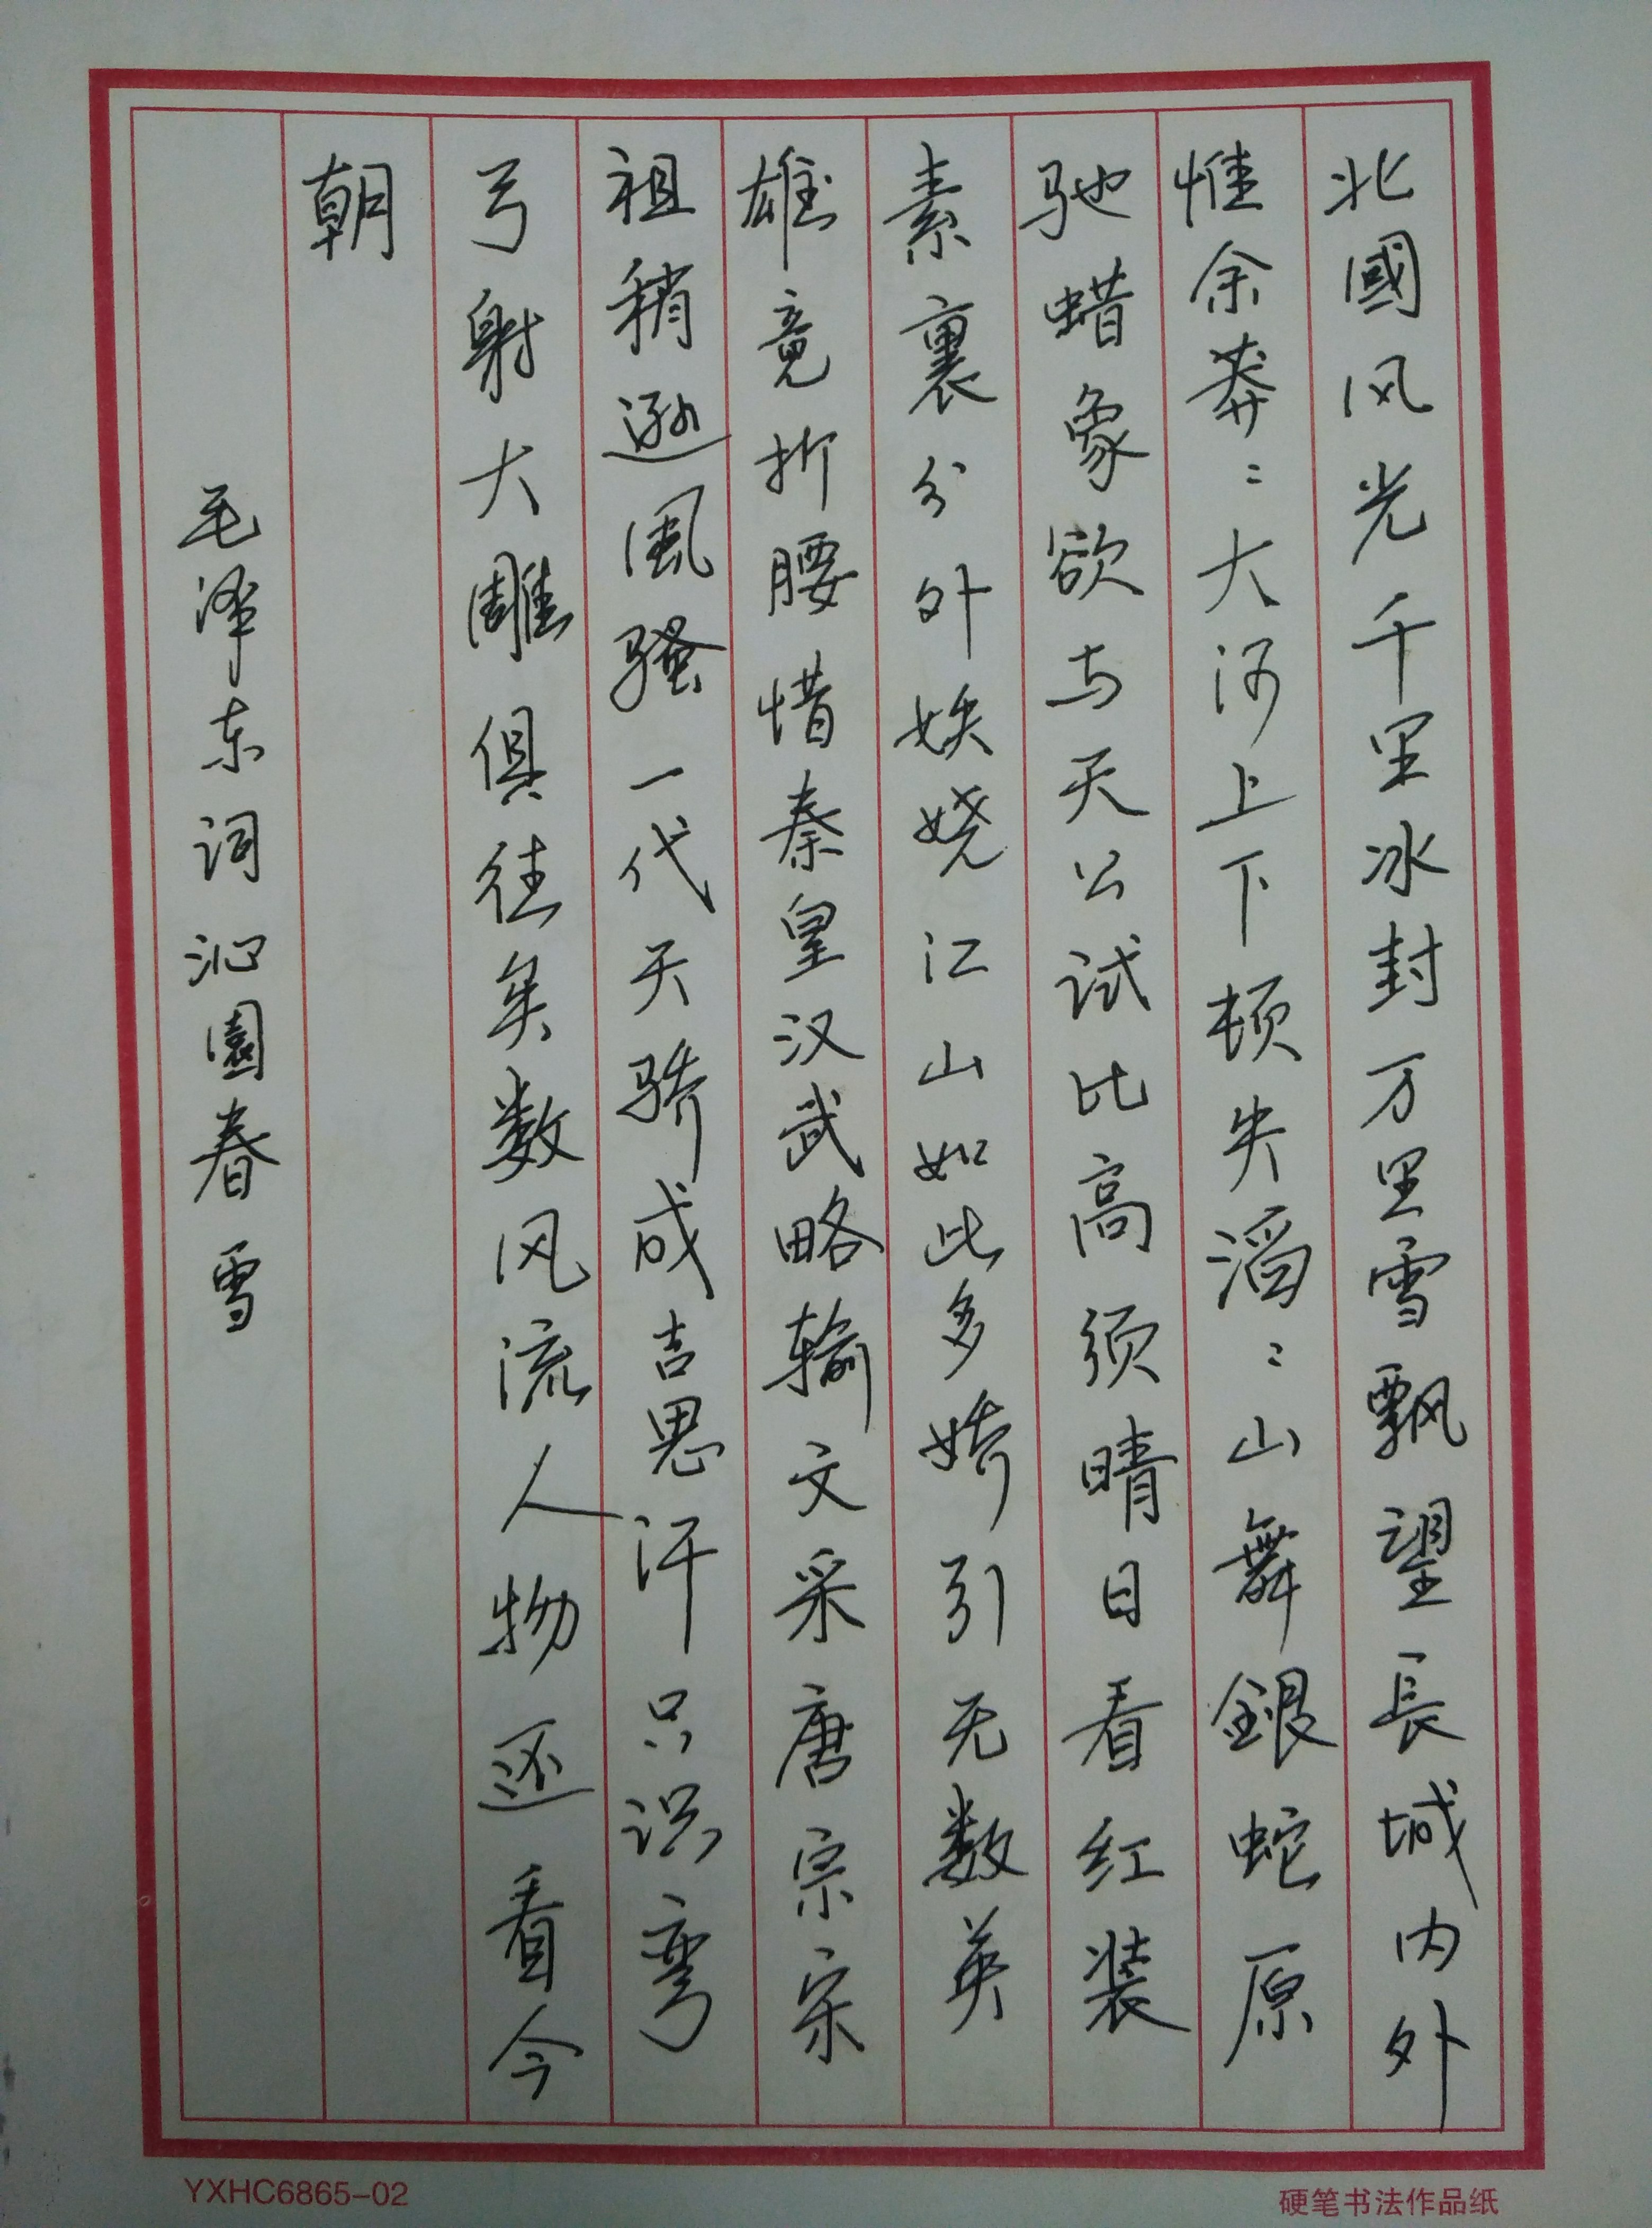 北國风光千里冰封万里雪飘望長城内外
惟余莽〻大河上下顿失滔〻山舞銀蛇原
驰蜡象欲与天公试比高须晴日看红装
素裹分外妖娆江山如此多娇引无数英
雄竟折腰惜秦皇汉武略输文采唐宗宋
祖稍逊風骚一代天骄成吉思汗只识弯
弓射大雕俱往矣数风流人物还看今
朝
毛泽东词沁園春雪
YXHC6865-02
硬笔书法作品纸